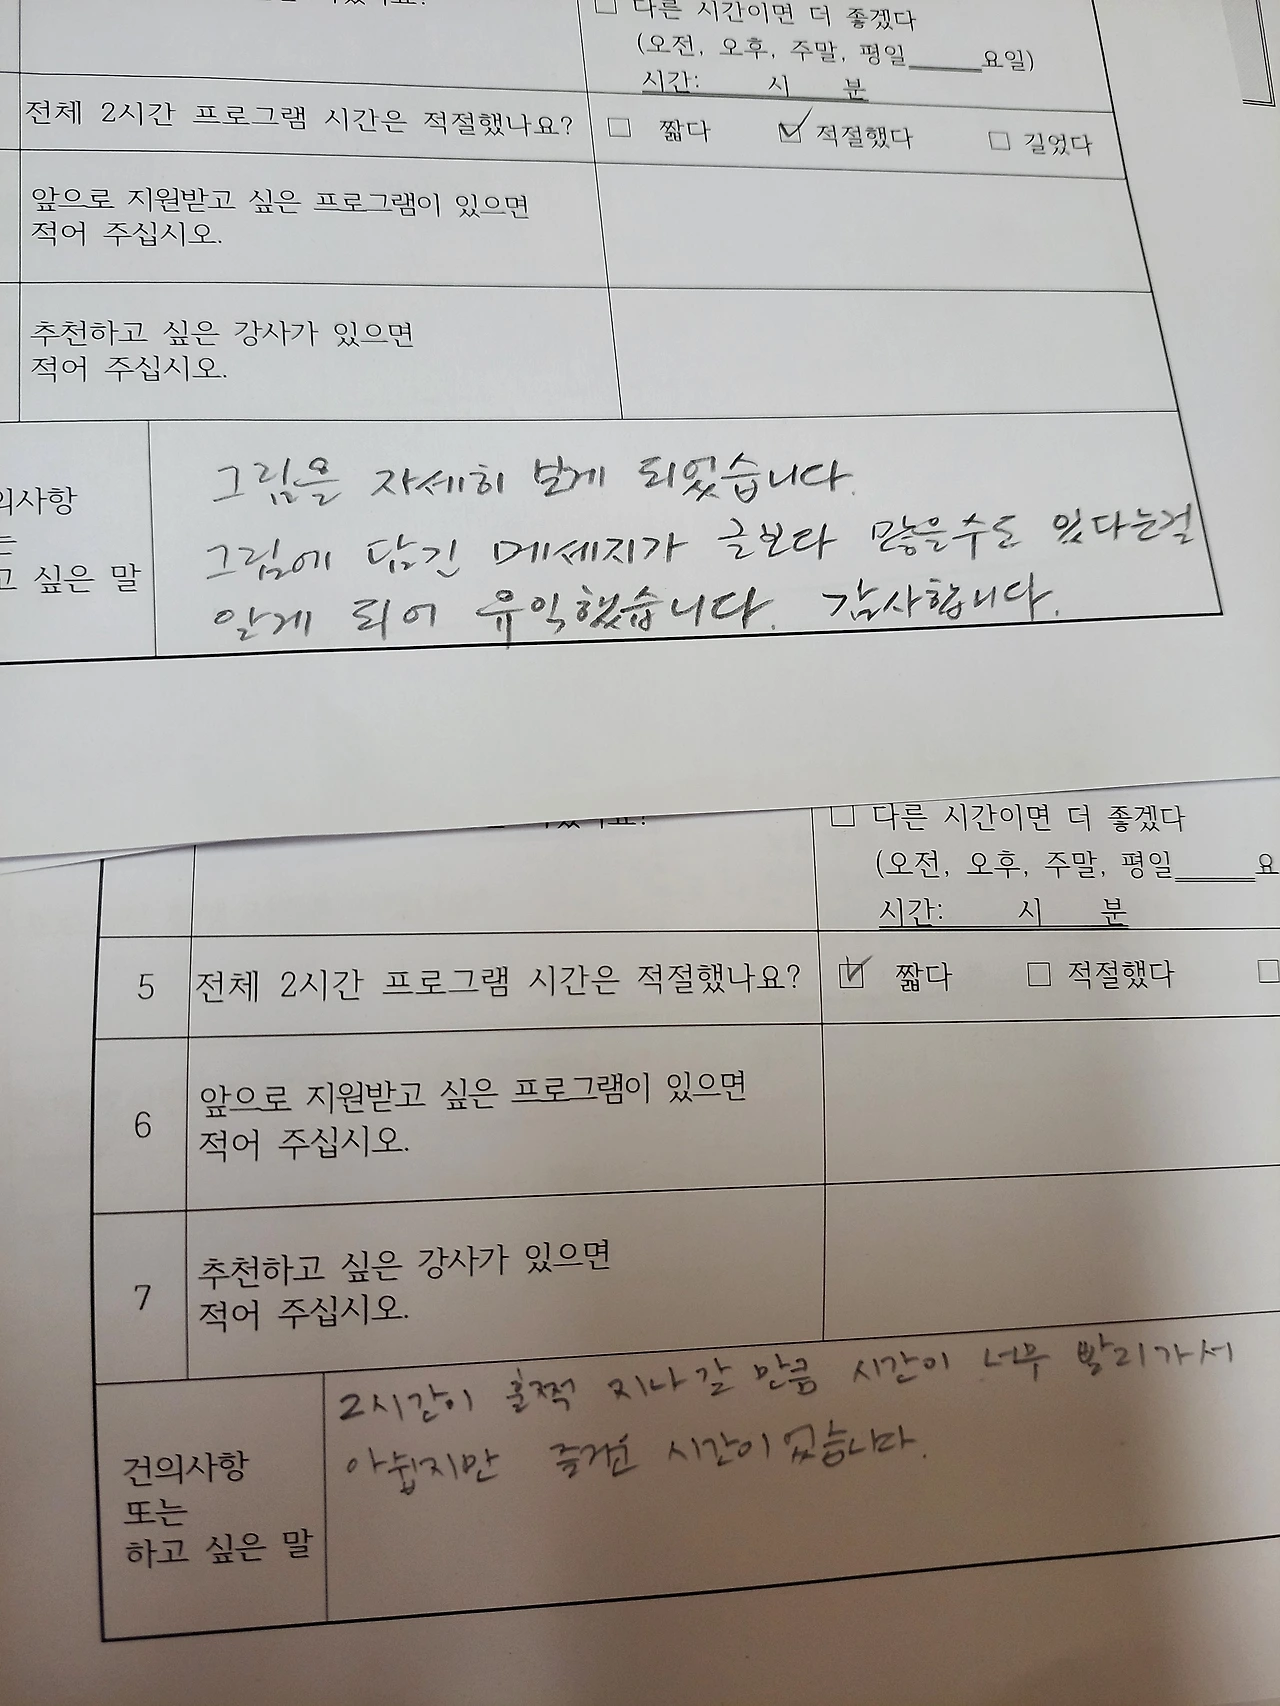 □ 다른 시간이면 더 좋겠다
(오전, 오후, 주말, 평일_____요일)
시간: 시 분
전체 2시간 프로그램 시간은 적절했나요? □ 짧다 ☑ 적절했다 □ 길었다
앞으로 지원받고 싶은 프로그램이 있으면
적어 주십시오.
추천하고 싶은 강사가 있으면
적어 주십시오.
의사항
는
고 싶은 말
그림을 자세히 보게 되었습니다.
그림에 담긴 메세지가 글보다 많을수도 있다는걸
알게 되어 유익했습니다. 감사합니다.
□ 다른 시간이면 더 좋겠다
(오전, 오후, 주말, 평일_____요
시간: 시 분
5 전체 2시간 프로그램 시간은 적절했나요? ☑ 짧다 □ 적절했다 □
6 앞으로 지원받고 싶은 프로그램이 있으면
적어 주십시오.
7 추천하고 싶은 강사가 있으면
적어 주십시오.
건의사항
또는
하고 싶은 말
2시간이 훌쩍 지나갈 만큼 시간이 너무 빨리가서
아쉽지만 즐거운 시간이었습니다.